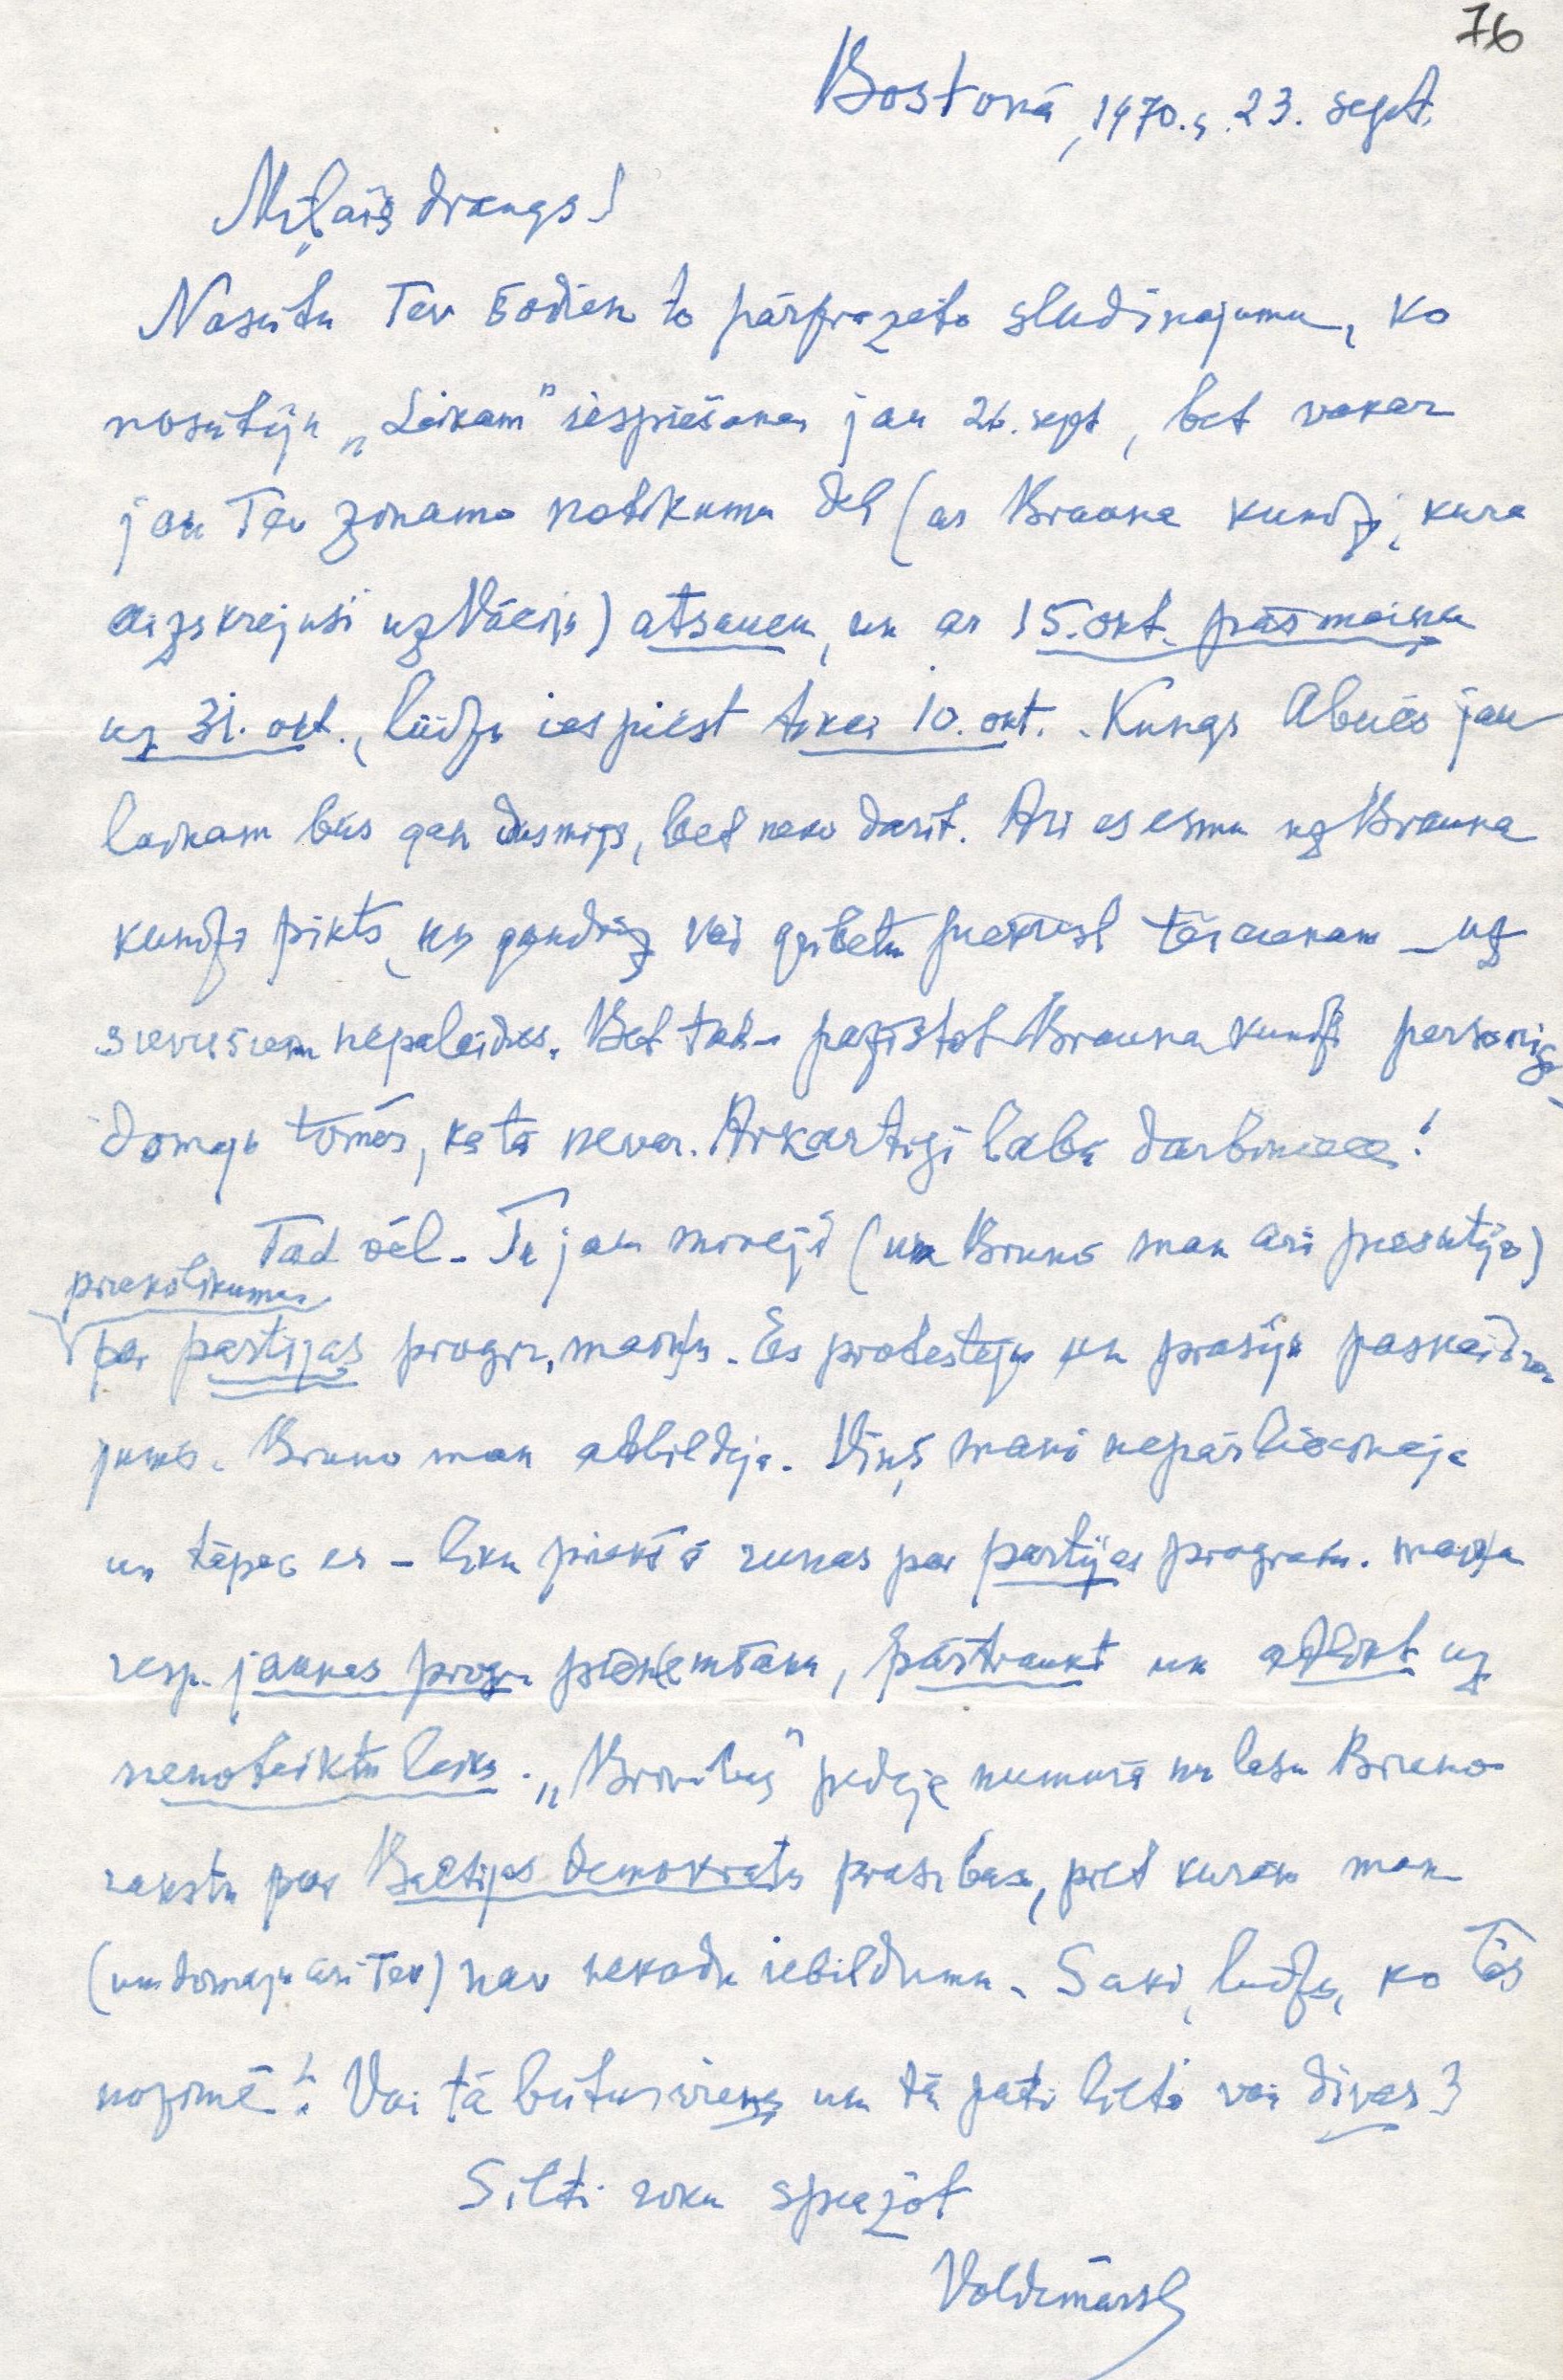 76
Bostonā, 1970. g. 23. sept.
Mīļais draugs!
Nosūtu Tev šodien to pārfrazēto sludinājumu, ko
nosūtīju „Laikam" iespiešanai jau 26. sept, bet vakar
jau Tev zināmo notikumu dēļ (ar Brauna kundzi, kura
aizskrējusi uz Vāciju) atsaucu, un ar 15. okt. pārmaiņu
uz 31. okt., lūdzu iespiest tikai 10. okt. Kungs jau
laikam būs gan dusmīgs, bet neko darīt. Arī es esmu uz Brauna
kundzi pikts, un gandrīz vai gribētu piekrist – uz
sieviešiem nepaļaidies. Bet tad – pazīstot Brauna kundzi personīgi,
domāju tomēr, ka tā nevar. Ārkārtīgi laba darbiniece!
Tad vēl – Tu jau minēji (un Bruno man arī piesūtīja)
priekšlikumus
par partijas progr. maiņu. Es protestēju un prasīju paskaidro-
jumus. Bruno man atbildēja. Viņš mani nepārliecināja
un tāpēc es – lieku priekšā runas par partijas program. maiņu
resp. jaunas progr. pieņemšanu, pārtraukt un atlikt uz
nenoteiktu laiku. „Brīvības" pēdējā numurā nu lasu Bruno
rakstu par Baltijas demokratu prasībām, pret kurām man
(un domāju arī Tev) nav nekādu iebildumu. Saki, lūdzu, ko tas
nozīmē? Vai tā būtu viena un tā pati lieta vai divas?
Silti roku spiežot
Voldemārs